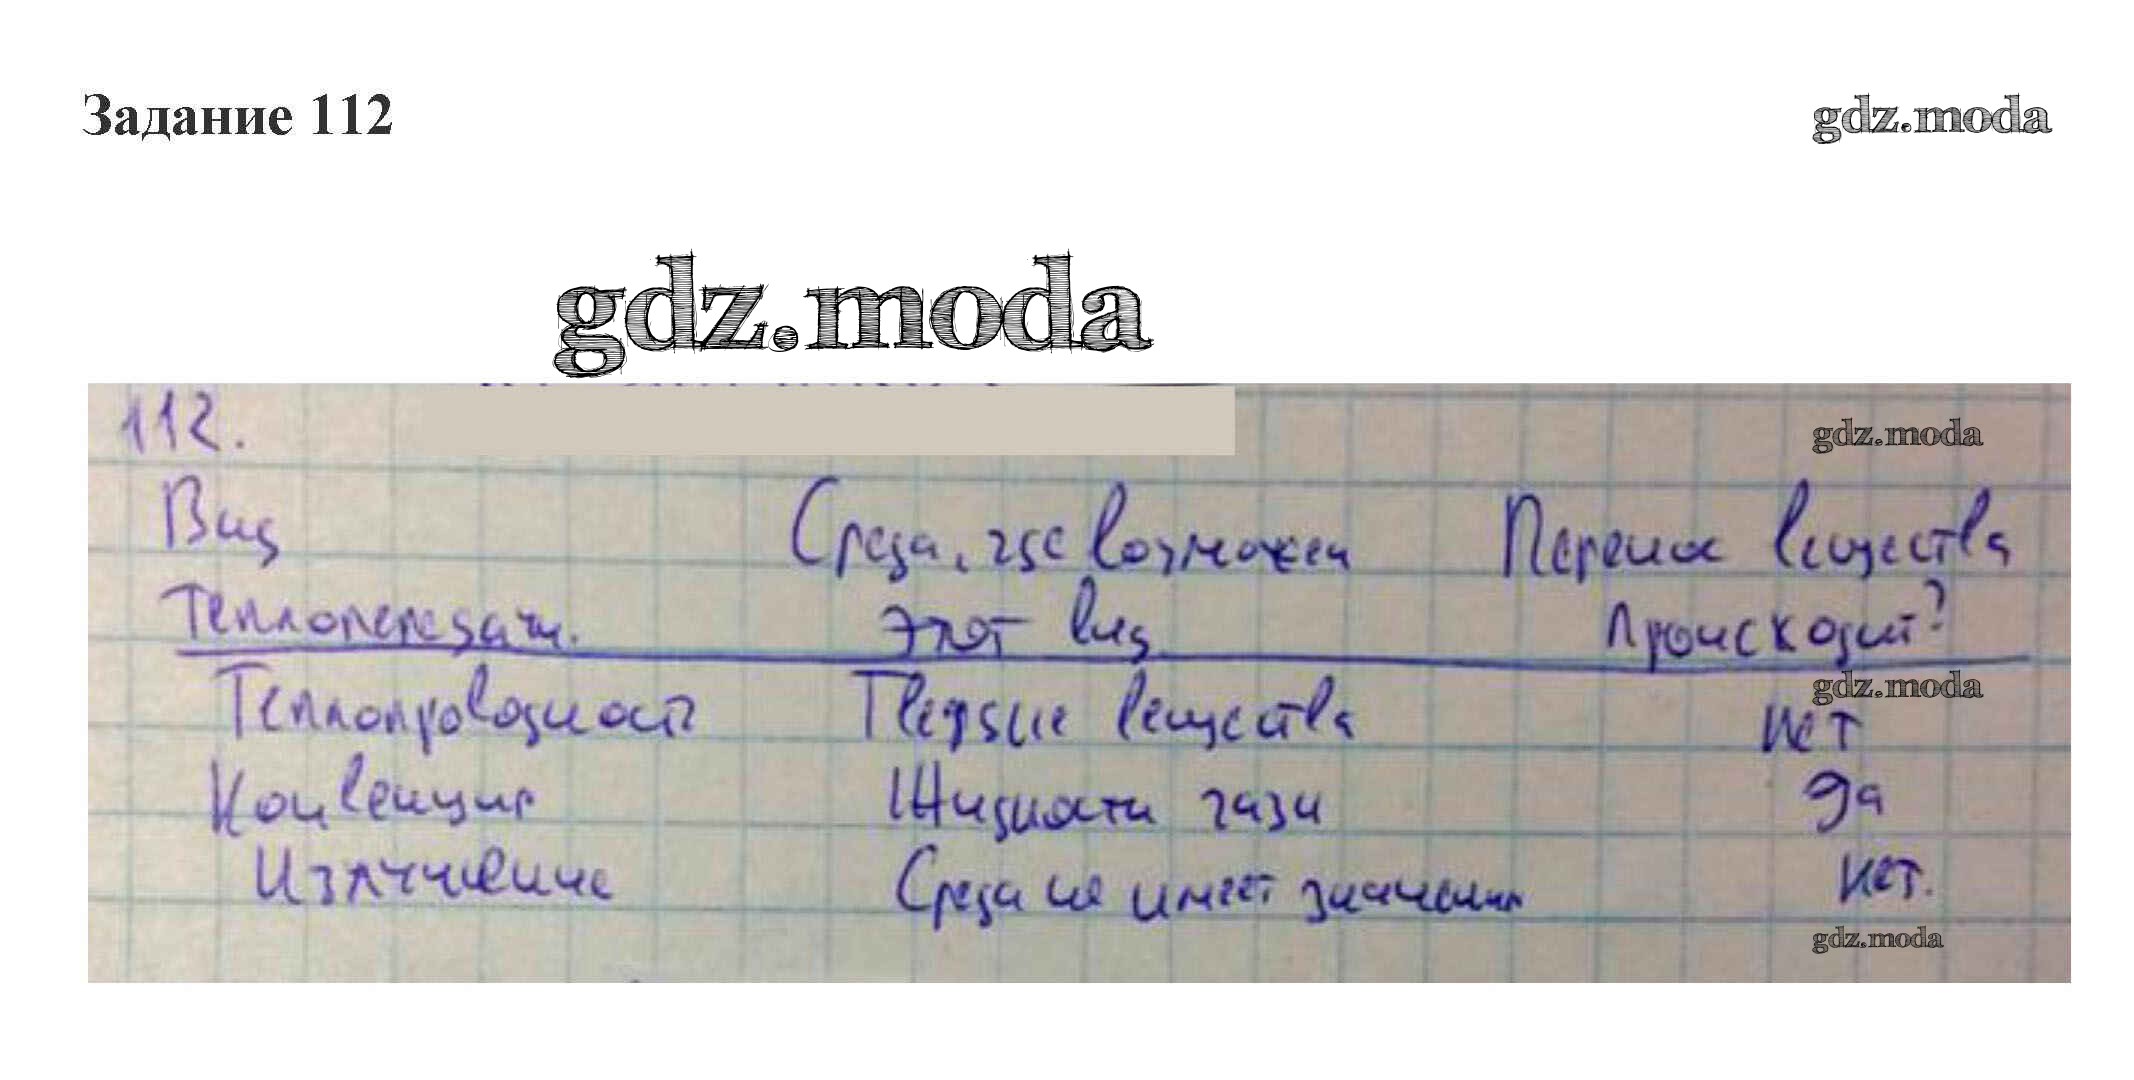 Задание 112
gdz.moda
gdz.moda
112.
gdz.moda
Вид Среда, где возможен Перенос вещества
теплопередачи. этот вид происходит?
gdz.moda
Теплопроводность Твердые вещества нет
Конвенция Жидкости газы да
Излучение Среда не имеет значения нет.
gdz.moda